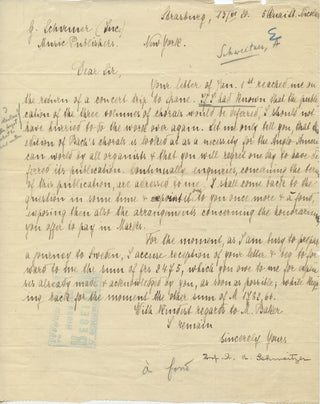 Strasburg, 13 20. 5 Quai St. Nicolas
G. Schirmer (Inc.)
Music Publishers. New York.
Schweitzer, A
Dear Sir,
Your letter of Jan. 1st reached me on
the return of a concert trip to
If I had known that the publi-
cation of the three volumes of
chorals would be deferred, I should not
have hurried to do the work over again. Let me only tell you, that the
edition of Bach's chorals is looked at as a necessity for the Anglo-Ameri-
can world by all organists & that you will regret one day to have de-
ferred its publication. Continually enquiries, concerning the
of this publication, are adressed to me. I shall come back to the
question in some time & to you once more à fond,
exposing then also the arrangements concerning the honorarium
you offer to pay in Marks.
For the moment, as I am busy to prepare
a journey to Sweden, I accuse reception of your letter & beg to for-
ward to me the sum of frs 2475, which you owe to me for
already made & acknowledged by you, as soon as possible; while keep-
ing back for the moment the other sum of M 1762,60.
With kindest regards to M. Baker
I remain
Sincerely Yours
A. Schweitzer
à fond